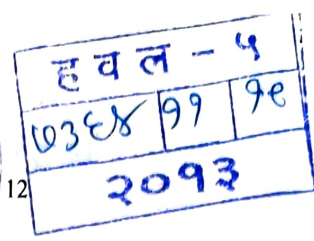 हवल - ५
७३६४ ११ १९
12
२०१३